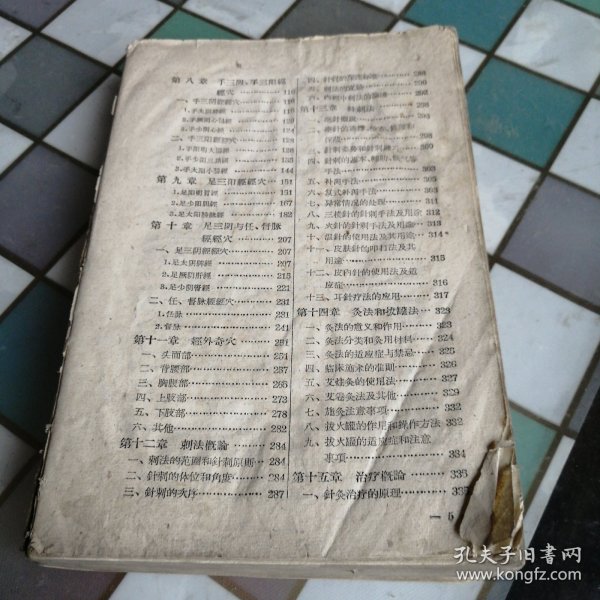 第八章 手三阴、手三阳經
經穴 116
一、手三阴經經穴 116
1.手太阴肺經 116
2.手厥阴心包經
3.手少阴心經
二、手三阳經經穴
1.手阳明大腸經
2.手太阳三焦經
3.手太阳小腸經 144
第九章 足三阳經經穴 151
1.足阳明胃經 151
2.足少阳胆經 167
3.足太阳膀胱經 182
第十章 足三阴与任、督脉
經經穴 207
一、足三阴經經穴 207
1.足太阴脾經 207
2.足厥阴肝經 215
3.足少阴腎經 221
二、任、督脉經經穴 231
1.任脉 231
2.督脉 241
第十一章 經外奇穴 251
一、头面部 251
二、背腰部 257
三、胸腹部 265
四、上肢部 273
五、下肢部 278
六、其他 282
第十二章 刺法概論 284
一、刺法的范圍和針刺原則 284
二、針刺的体位和角度 284
三、針刺的次序 287
四、針刺的深度标准 288
第十三章 針刺法
手法 303
五、补瀉手法 303
六、复式补瀉手法 308
七、异常情况的处理 311
八、三棱針的針刺手法及用途 312
九、火針的針刺手法及用途 313
十、温針的使用法及其用途 314
十一、皮肤針的叩打法及其
用途 315
十二、皮內針的使用法及适
应症 316
十三、耳針疗法的应用 317
第十四章 灸法和拔罐法 323
一、灸法的意义和作用 323
二、灸法分类和灸用材料 324
三、灸法的适应症与禁忌 325
四、临床施灸的准则 326
五、艾炷灸的使用法 327
六、艾卷灸法及其他 329
七、施灸注意事項 332
八、拔火罐的作用和操作方法 332
九、拔火罐的适应症和注意
事項 334
第十五章 治疗概論 335
一、針灸治疗的原理 335
一 5
孔夫子旧书网
www.kongfz.com